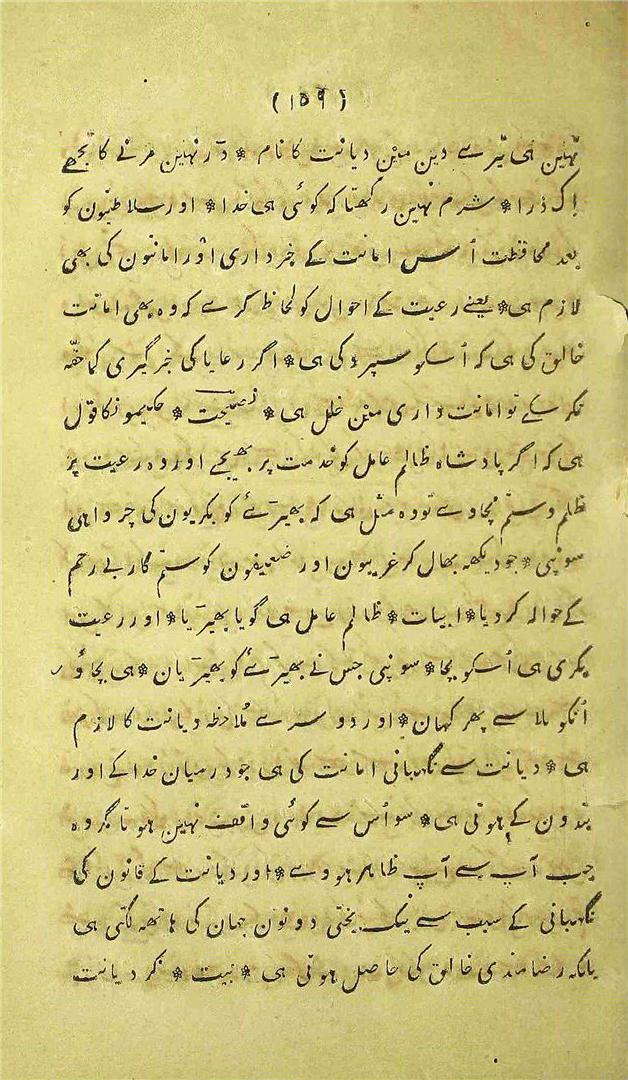 ( ۱۵۹ )
نہین ہی تیرے دین مین دیانت کا نام * در نہین مرنے کا تجھے
اک ذرا * شرم نہین رکھتا کہ کوئی ہی خدا * اور سلاطینون کو
بعد محافظت اُس امانت کے خبرداری اور امانتون کی بھی
لازم ہی * یعنے رعیت کے احوال کو لحاظ کرے کہ وہ بھی امانت
خالق کی ہی کہ اُسکو سپرد کی ہی * اگر رعایا کی خبرگیری کماحقّہ
نکر سکے تو امانت داری مین خلل ہی * نصیحت * حکیمونکا قول
ہی کہ اگر پادشاہ ظالم عامل کو خدمت پر بھیجے اور وہ رعیت پر
ظلم و ستم مچاوے تو وہ مثل ہی کہ بھیرَئے کو بکریون کی چرواہی
سونپی * جو دیکھ بھال کر غریبون اور ضعیفون کو ستم گار بے رحم
کے حوالہ کردیا * ابیات * ظالم عامل ہی گویا بھیرَیا * اور رعیت
بکری ہی اُسکو بچا * سونپی جس نے بھیرَئے کو بھیرَیان * ہی بچاوُ
اُنکو بلا سے پھر کہان * اور دوسرے مُلاحظہ دیانت کا لازم
ہی * دیانت سے نگہبانی امانت کی ہی جو درمیان خدا کے اور
بندون کے ہوتی ہی * سو اُس سے کوئی واقف نہین ہوتا مگر وہ
جب آپ سے آپ ظاہر ہووے * اور دیانت کے قانون کی
نگہبانی کے سبب سے نیک بختی دونون جہان کی ہاتھ لگتی ہی
بلکہ رضامندی خالق کی حاصل ہوتی ہی * بیت * کر دیانت